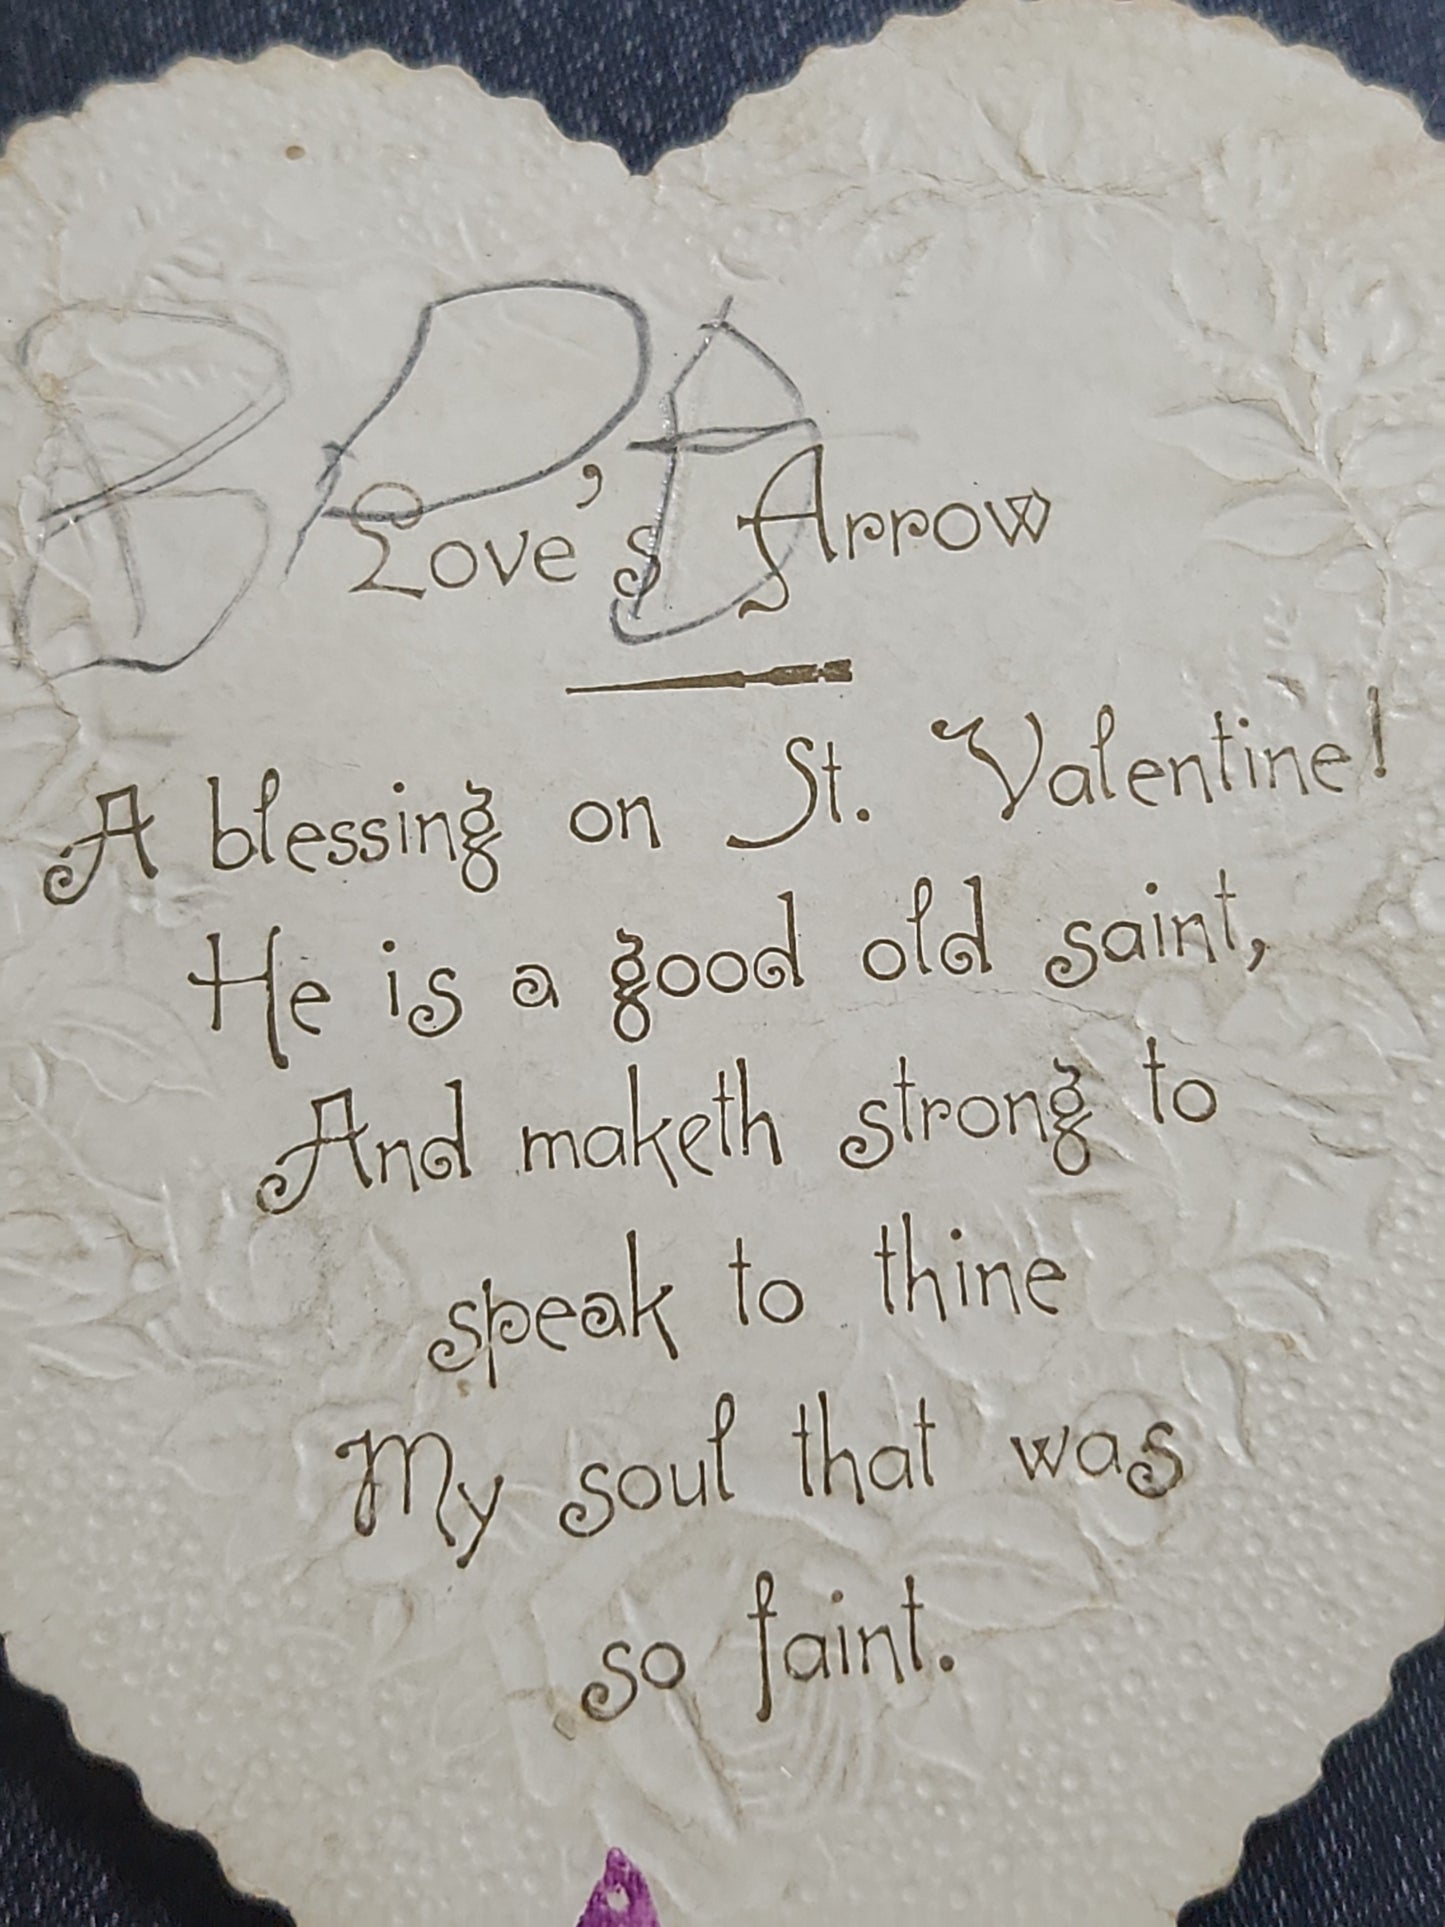 Love's Arrow
A blessing on St. Valentine!
He is a good old saint,
And maketh strong to
speak to thine
My soul that was
so faint.